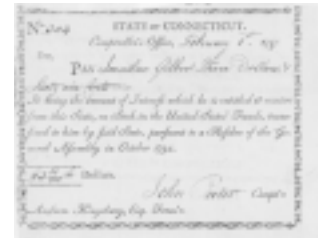 STATE OF CONNECTICUT.
Comptroller's Office, February
SIR,
PAY Jonathan Gilbert Three Dollars &
It being the amount of Interest which he is entitled to receive
from this State, on Stock in the United States' Funds, transf
fered to him by said State, pursuant to a Resolve of the Ge
neral Assembly in October 1791.
Dollars.
John Porter Compt'r
Andrew Kingsbury, Esq. Treas'r